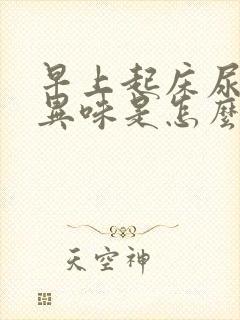 早上起床尿
異味是怎麼
天空神